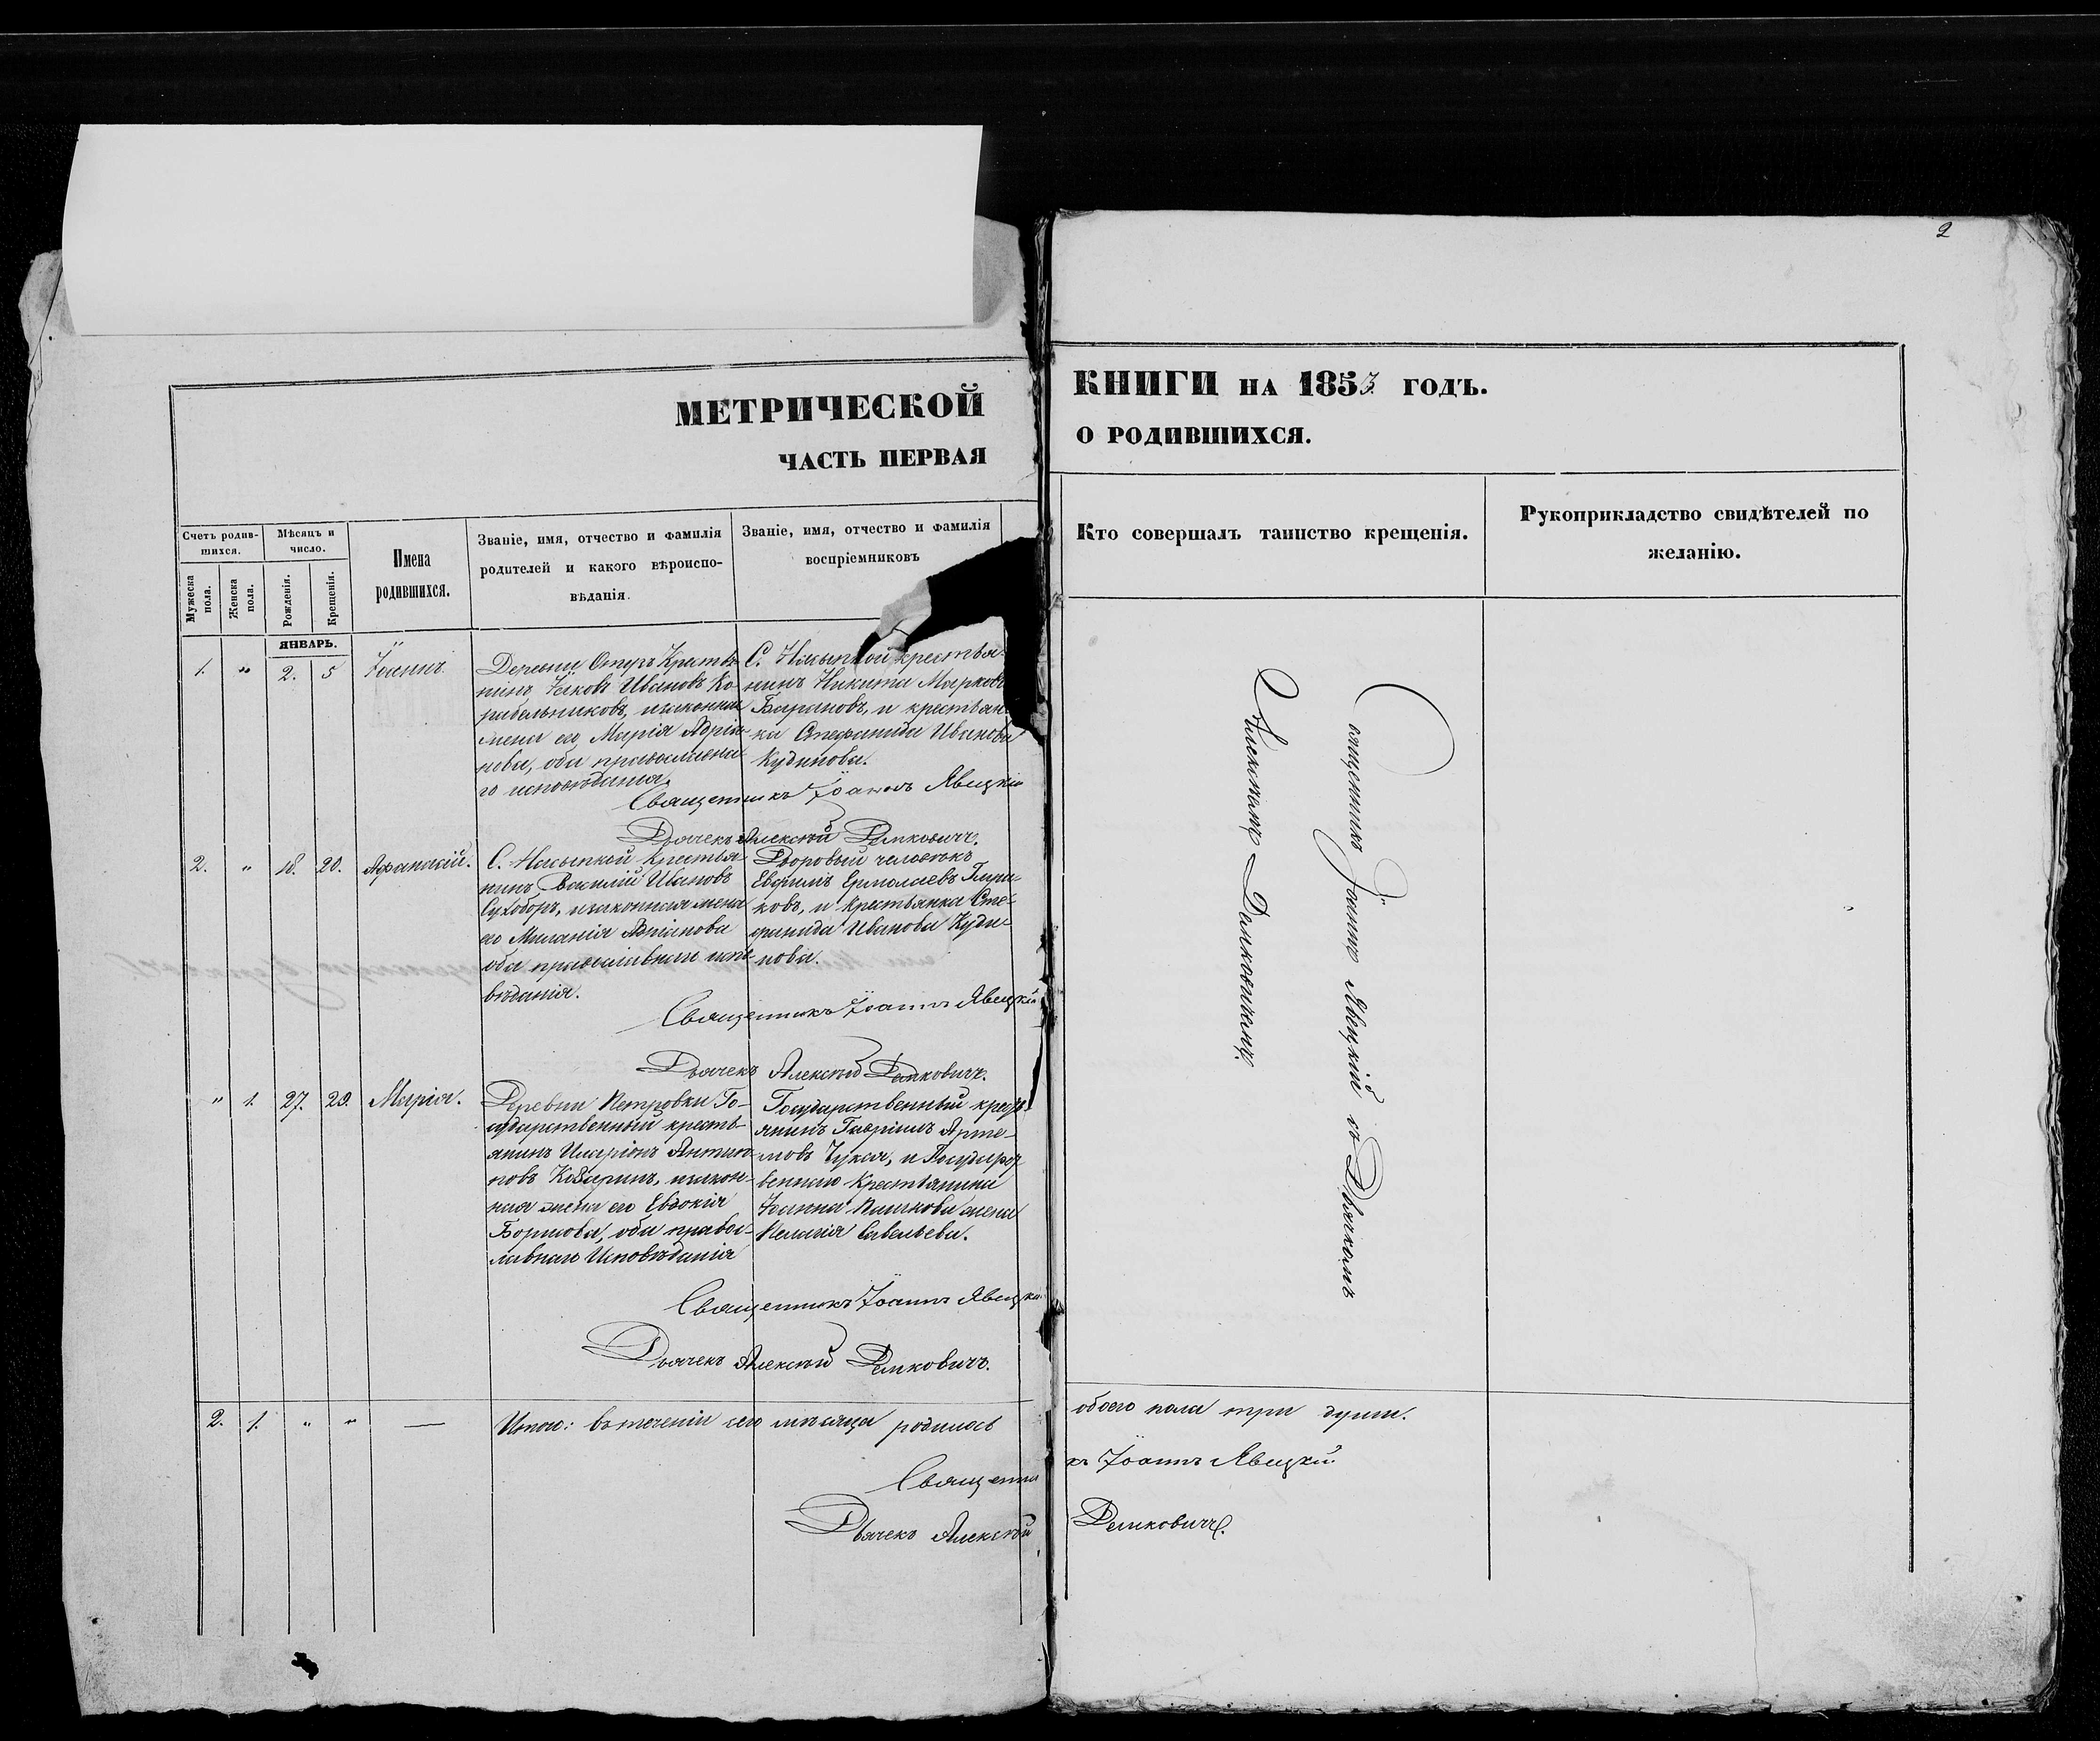 2
МЕТРИЧЕСКОЙ
КНИГИ НА 1853 ГОДЪ.
ЧАСТЬ ПЕРВАЯ
О РОДИВШИХСЯ.
Счетъ родив-
шихся.
Мужеска пола.
Женска пола.
Мѣсяцъ и
число.
Рожденія.
Крещенія.
Имена
родившихся.
Званіе, имя, отчество и фамилія
родителей и какого вѣроиспо-
вѣданія.
Званіе, имя, отчество и фамилія
воспріемниковъ
Кто совершалъ таинство крещенія.
Рукоприкладство свидѣтелей по
желанію.
ЯНВАРЬ.
1. " 2. 5 Іоаннъ.
Деревни Крестья-
нинъ Іаковъ Ивановъ Ко-
рабельниковъ, и законная
жена его Марія Адріа-
нова, оба православна-
го исповѣданія.
С. Насыпной крестья-
нинъ Никита Марковъ
Барановъ, и крестьян-
ка Стефанида Иванова
Кудинова.
Священникъ Іоаннъ Явецкій
Дьячекъ Алексѣй Демковичъ.
2. " 18. 20. Афанасій.
С. Насыпной Крестья-
нинъ Василій Ивановъ
Сухоборъ, и законная жена
его Миланія Адріанова
оба православнаго испо-
вѣданія.
Дворовый человѣкъ
Евфимъ Ермолаевъ
ковъ, и Крестьянка Сте-
фанида Иванова Куди-
нова.
Священникъ Іоаннъ Явецкій
Дьячекъ Алексѣй Демковичъ.
" 1. 27. 29. Марія.
Деревни Петровки Го-
сударственный кресть-
янинъ Иларіонъ Антио-
новъ и закон-
ная жена его Евдокія
оба право-
славнаго Исповѣданія
Государственный кресть-
янинъ Гавріилъ Арте-
мовъ Чукая, и Государст-
веннаго Крестьянина
Іоанна жена
Пелагія Савельева.
Священникъ Іоаннъ Явецкій
Дьячекъ Алексѣй Демковичъ.
Священникъ Іоаннъ Явецкій съ Дьячкомъ
Алексѣемъ Демковичемъ.
2. 1. " " — Итого: въ теченіи сего мѣсяца родилось обоего пола три души.
Священникъ Іоаннъ Явецкій
Дьячекъ Алексѣй Демковичъ.